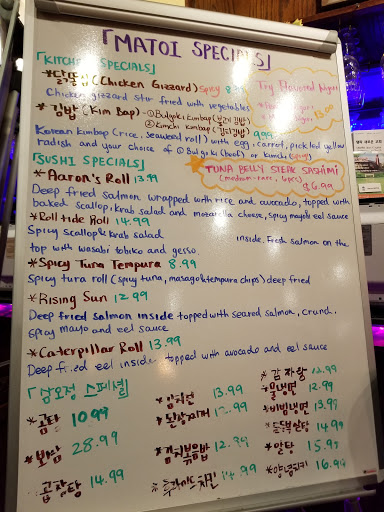 「MATOI SPECIALS」
「KITCHEN SPECIALS」
(Chicken Gizzard) Spicy 8.
Chicken gizzard stir fried with vegetables
Try Flavored
13.00
*김밥 (Kim Bap) - ① Bulgoki Kimbap (불고기 김밥)
② Kimchi Kimbap (김치김밥) 9.99
Korean Kimbap (rice, seaweed roll) with egg, carrot, pickled yellow
radish and your choice of ① Bulgoki (beef) or Kimchi (spicy)
「SUSHI SPECIALS」
TUNA BELLY STEAK SASHIMI
(medium-rare, 6pcs)
$6.99
*Aaron's Roll 13.99
Deep fried salmon wrapped with rice and avocado, topped with
baked scallop, krab salad and mozarella cheese, spicy mayo eel sauce
*Roll tide Roll 14.99
Spicy scallop & krab salad inside. Fresh salmon on the
top with wasabi tobiko and
*Spicy Tuna Tempura 8.99
Spicy tuna roll (spicy tuna, masago & tempura chips) deep fried
*Rising Sun 12.99
Deep fried salmon inside topped with seared salmon, crunch,
spicy mayo and eel sauce
*Caterpillar Roll 13.99
Deep fried eel inside topped with avocado and eel sauce
스페셜」
*곰탕 10.99
*보쌈 28.99
곱창탕 14.99
13.99
12.99
*김치볶음밥
치킨 14.99
*감자탕 12.99
*물냉면 12.99
*비빔냉면 13.99
14.99
*알탕 15.99
*양념치킨 16.99